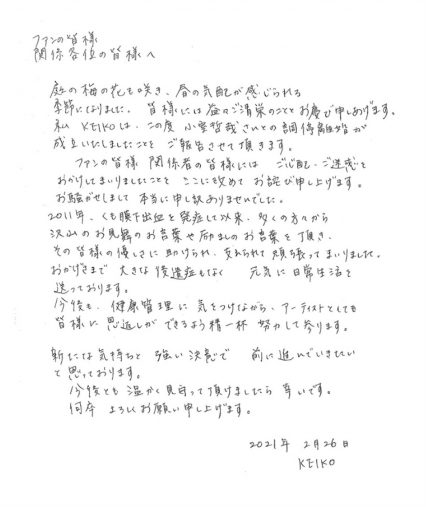 ファンの皆様
関係各位の皆様へ
庭の梅の花も咲き、春の気配が感じられる
季節になりました。皆様には益々ご清栄のこととお慶び申しあげます。
私 KEIKOは、この度 小室哲哉さんとの調停離婚が
成立いたしましたことを ご報告させて頂きます。
ファンの皆様 関係者の皆様には ご心配・ご迷惑を
おかけしてまいりましたことを ここに改めて お詫び申し上げます。
お騒がせしまして 本当に申し訳ありませんでした。
2011年、くも膜下出血を発症して以来、多くの方々から
沢山のお見舞のお言葉や励ましのお言葉を頂き、
その皆様の優しさに助けられ、支えられて頑張ってまいりました。
おかげさまで 大きな後遺症もなく 元気に日常生活を
送っております。
今後も、健康管理に気をつけながら、アーティストとしても
皆様に恩返しができるよう精一杯 努力して参ります。
新たな気持ちと 強い決意で 前に進んでいきたい
と思っております。
今後とも温かく見守って頂けましたら 幸いです。
何卒 よろしくお願い申し上げます。
2021年 2月26日
KEIKO